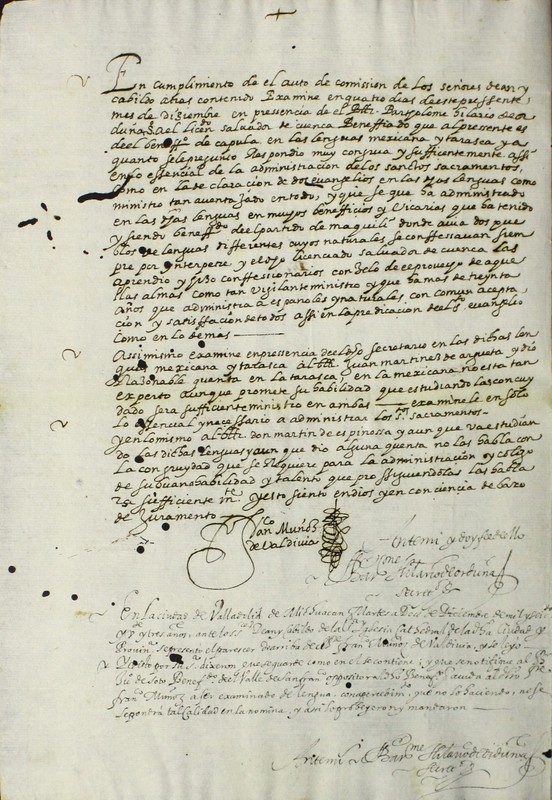 En cumplimiento de el auto de comision de los señores dean y
cabildo atras contenido Examine en quatro dias de este presente
mes de diziembre en presencia de el Bllr. Bartolome hilario de or
duña, S. al licendo. salvador de cuenca Beneffiado que al presente es
de el beneffo. de capula en las lenguas mexicana y tarasca y a
quanto se le pregunto Respondio muy congrua y sufficentemente assi
en lo essencial de la administracion de los sanctos sacramentos,
como en la declaracion de dos euangelios en las dhas lenguas como
ministro tan auentajado en todo, y que se que ha administrado
en las dhas lenguas en muchos benefficios y Vicarias que ha tenido
y siendo beneffdo. del partido de maquili donde auia dos pue
blos de lenguas differentes cuyos naturales se conffessauan siem
pre por ynterpete y el dho licenciado salvador de cuenca las
aprendio y hizo conffessionarios con zelo de el prouecho de aque
llas almas como tan vigilante ministro y que ha mas de treynta
años que administra a españoles y naturales, con comun acepta
cion y satisfacion de todos assi en la predicacion de el sto. euangelio
como en lo demas
Assimismo examine en pressencia de el dho secretario en las dichas len
guas mexicana y tarasca al bllr. Juan martinez de argueta y dio
Razonable quenta en la tarasca, en la mexicana no esta tan
experto aunque promete su habilidad que estudiandolas con cuy
dado sera sufficente ministro en ambas examinele en solo
lo essencial y necessario a administrar los stos. sacramentos
y en lo mismo al bllr. don martin de espinossa y aun que va estudian
do las dichas lenguas y aun que dio alguna quenta no las habla con
la congruydad que se Requiere para la administracion y colijo
de su buena habilidad y talento que prossiguiendolas las habla
ra sufficientemte. y esto siento en dios y en conciencia debaxo
de Juramento
Fco.
san Muñoz
de Valdivia
Ante mi y doy fee de ello
Bar.me Hilario de orduña
Secreto.
En la ciudad de Valladolid de Mechuacan Martes a de Diciembre de mil y seiso.
y tres años, ante los ss. Dean y cabildo de la sta. Iglesia Cathedral de la dha Ciudad y
Provina. se presento el parecer de arriba de el Br. Franco. Muñoz de Valdivia, y se leyo
Y visto por su sa. dixeron que se guarde como en el se contiene, y que se notifique al
de Soto Benefdo. del Valle de San Franco. oppositor al dho Benefo. acuda al dho
Franco. Muñoz a ser examinado de lengua, con apercebimo. que no lo haciendo, no se
le pondra tal calidad en la nomina, y assi lo proveyeron y mandaron
Ante mi Bar.me Hilario de Orduña
Secreto.